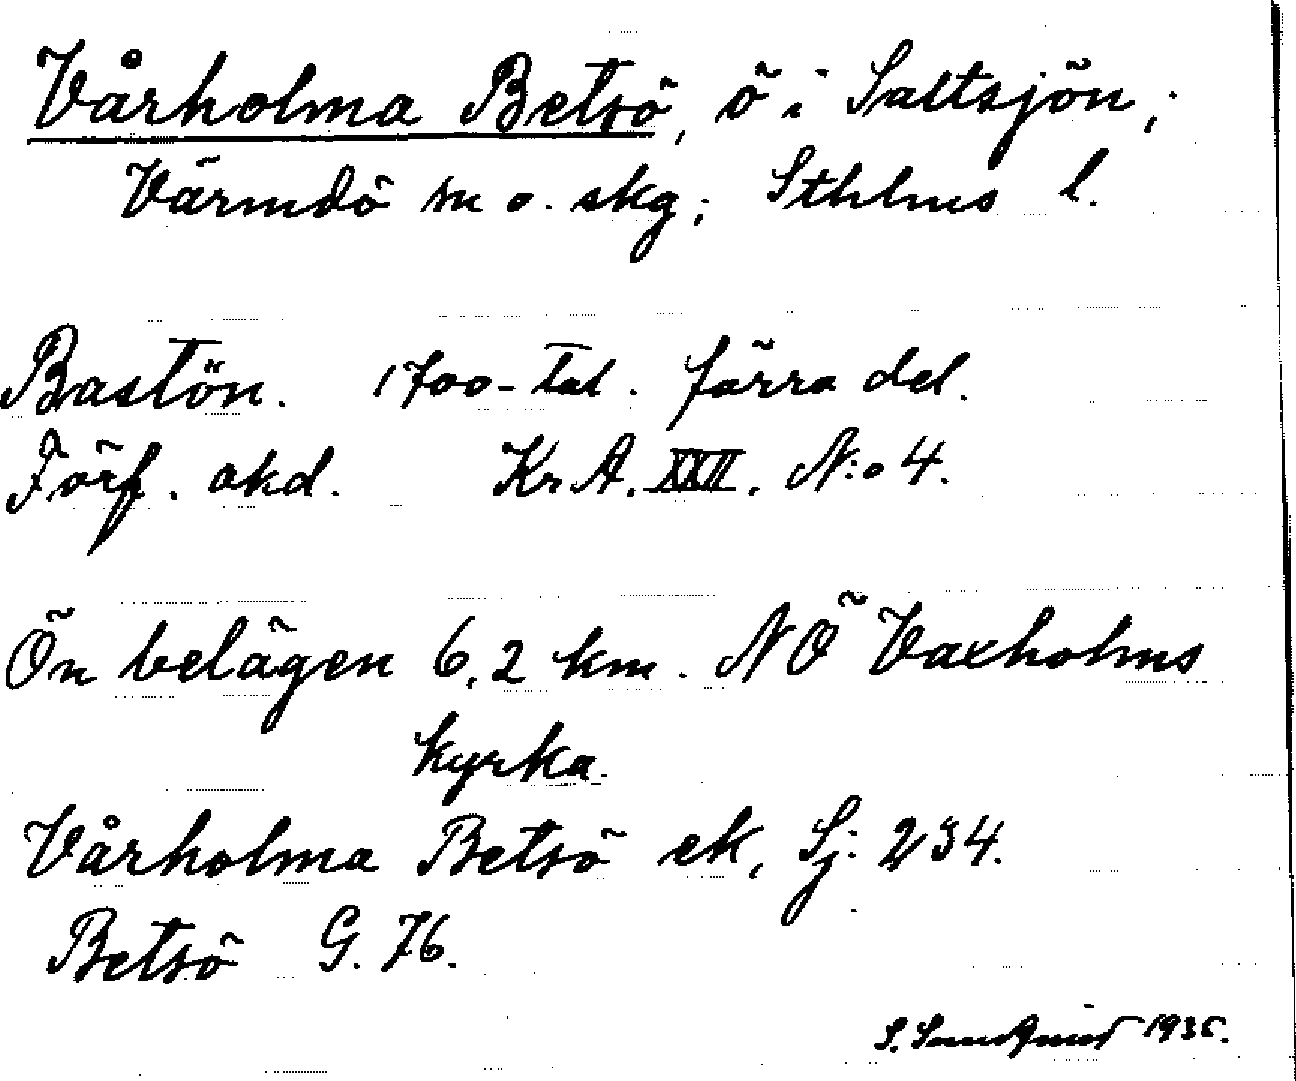 Vårholma Betsö, ö i Saltsjön,;
Värmdö m o. skg; Sthlms l.
Bastön. 1700-tal. förra del.
Förf. okd. Kr A. XXII. N:o 4.
Ön belägen 6,2 km. NÖ Vaxholms
kyrka.
Vårholma Betsö ek, Sj: 234.
Betsö G. 76.
S. 1935.